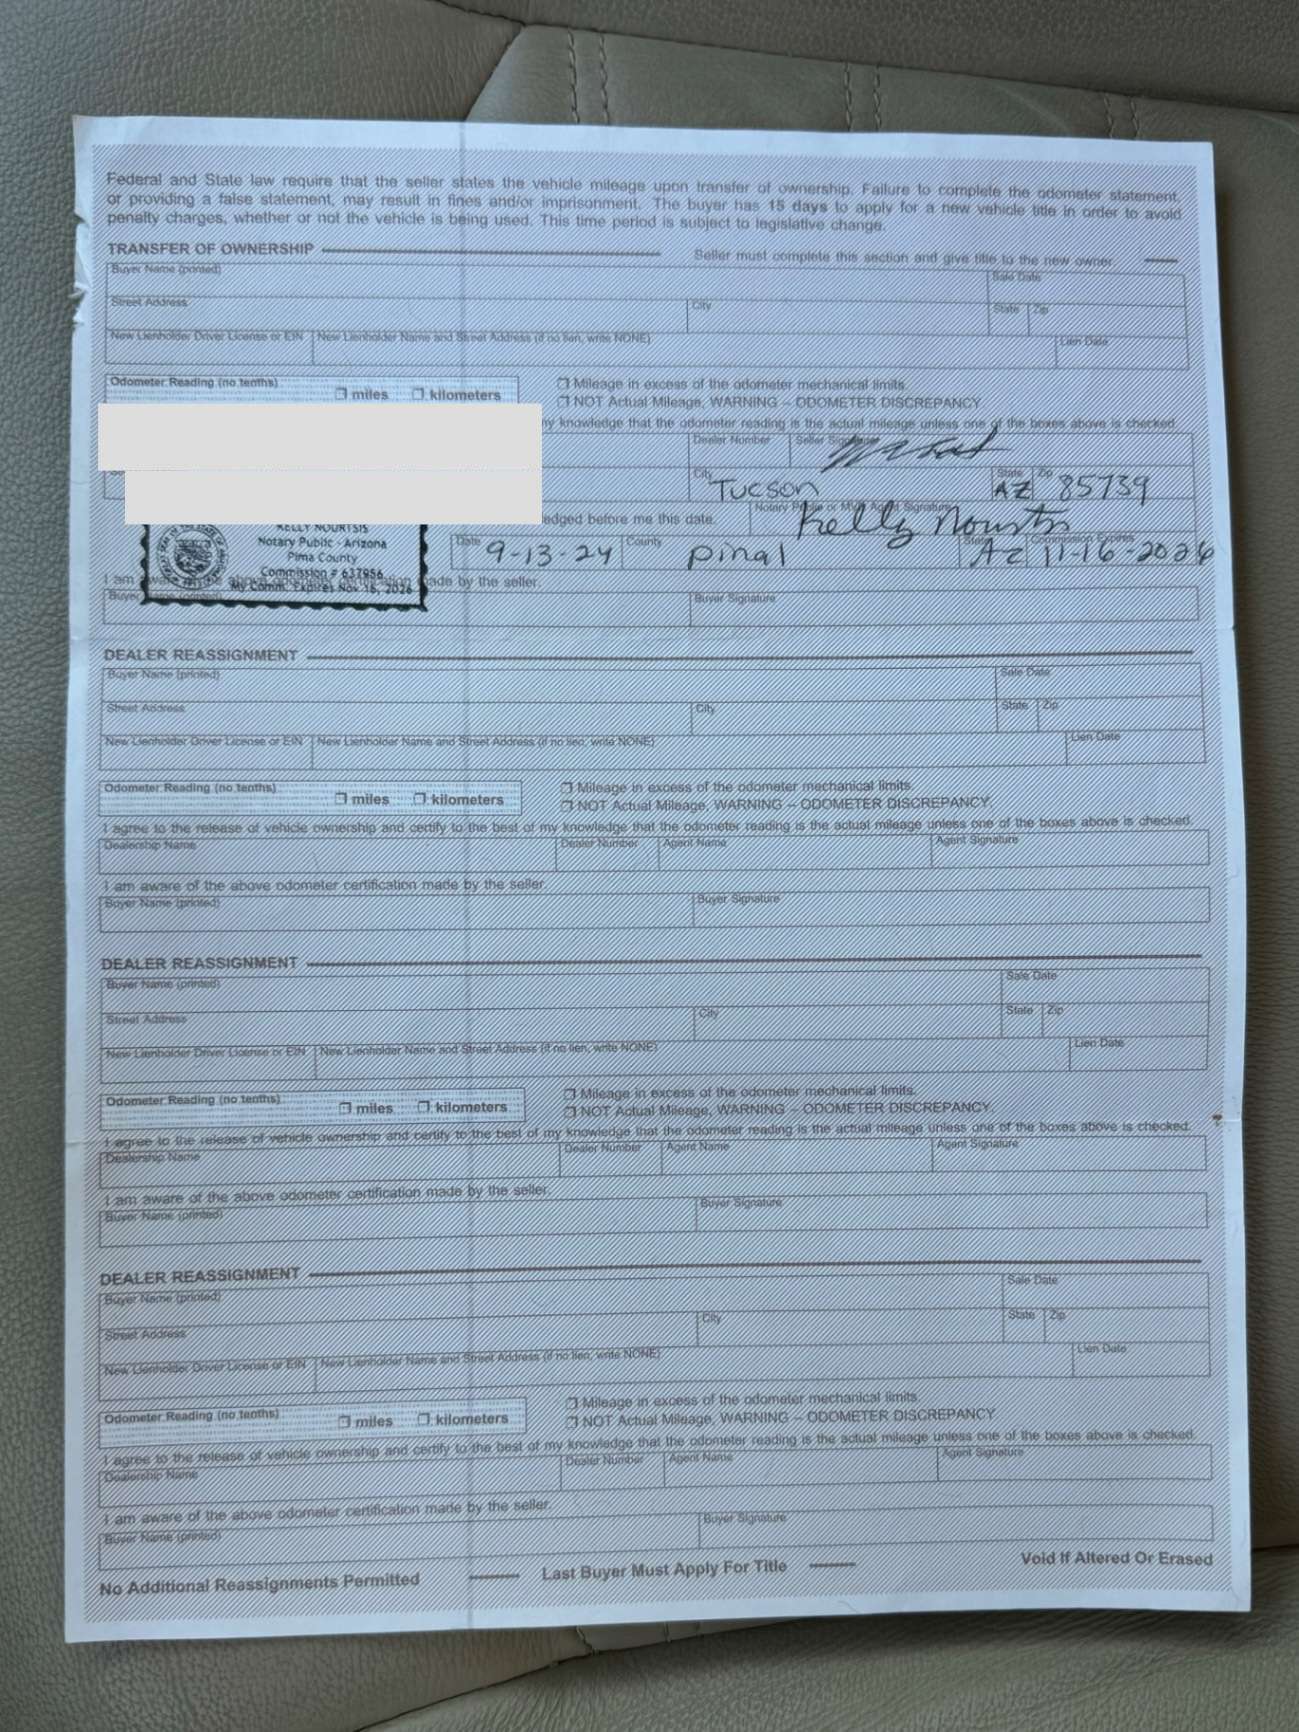 Federal and State law require that the seller states the vehicle mileage upon transfer of ownership. Failure to complete the odometer statement,
or providing a false statement, may result in fines and/or imprisonment. The buyer has 15 days to apply for a new vehicle title in order to avoid
penalty charges, whether or not the vehicle is being used. This time period is subject to legislative change.
TRANSFER OF OWNERSHIP Seller must complete this section and give title to the new owner.
Buyer Name (printed) Sale Date
Street Address City State Zip
New Lienholder Driver License or EIN New Lienholder Name and Street Address (if no lien, write NONE) Lien Date
Odometer Reading (no tenths) miles kilometers
Mileage in excess of the odometer mechanical limits.
NOT Actual Mileage, WARNING – ODOMETER DISCREPANCY
my knowledge that the odometer reading is the actual mileage unless one of the boxes above is checked.
Dealer Number Seller Signature
City Tucson State AZ Zip 85739
ledged before me this date. Notary Public or MVD Agent Signature Kelly Nourtsis
KELLY NOURTSIS
Notary Public - Arizona
Pima County
Commission # 637956
My Comm. Expires Nov 16, 2026
Date 9-13-24 County Pinal State AZ Commission Expires 11-16-2026
I am aware of the above odometer certification made by the seller.
Buyer Name (printed) Buyer Signature
DEALER REASSIGNMENT
Buyer Name (printed) Sale Date
Street Address City State Zip
New Lienholder Driver License or EIN New Lienholder Name and Street Address (if no lien, write NONE) Lien Date
Odometer Reading (no tenths) miles kilometers
Mileage in excess of the odometer mechanical limits.
NOT Actual Mileage, WARNING – ODOMETER DISCREPANCY.
I agree to the release of vehicle ownership and certify to the best of my knowledge that the odometer reading is the actual mileage unless one of the boxes above is checked.
Dealership Name Dealer Number Agent Name Agent Signature
I am aware of the above odometer certification made by the seller.
Buyer Name (printed) Buyer Signature
DEALER REASSIGNMENT
Buyer Name (printed) Sale Date
Street Address City State Zip
New Lienholder Driver License or EIN New Lienholder Name and Street Address (if no lien, write NONE) Lien Date
Odometer Reading (no tenths) miles kilometers
Mileage in excess of the odometer mechanical limits.
NOT Actual Mileage, WARNING – ODOMETER DISCREPANCY.
I agree to the release of vehicle ownership and certify to the best of my knowledge that the odometer reading is the actual mileage unless one of the boxes above is checked.
Dealership Name Dealer Number Agent Name Agent Signature
I am aware of the above odometer certification made by the seller.
Buyer Name (printed) Buyer Signature
DEALER REASSIGNMENT
Buyer Name (printed) Sale Date
Street Address City State Zip
New Lienholder Driver License or EIN New Lienholder Name and Street Address (if no lien, write NONE) Lien Date
Odometer Reading (no tenths) miles kilometers
Mileage in excess of the odometer mechanical limits.
NOT Actual Mileage, WARNING – ODOMETER DISCREPANCY
I agree to the release of vehicle ownership and certify to the best of my knowledge that the odometer reading is the actual mileage unless one of the boxes above is checked.
Dealership Name Dealer Number Agent Name Agent Signature
I am aware of the above odometer certification made by the seller.
Buyer Name (printed) Buyer Signature
No Additional Reassignments Permitted Last Buyer Must Apply For Title Void If Altered Or Erased